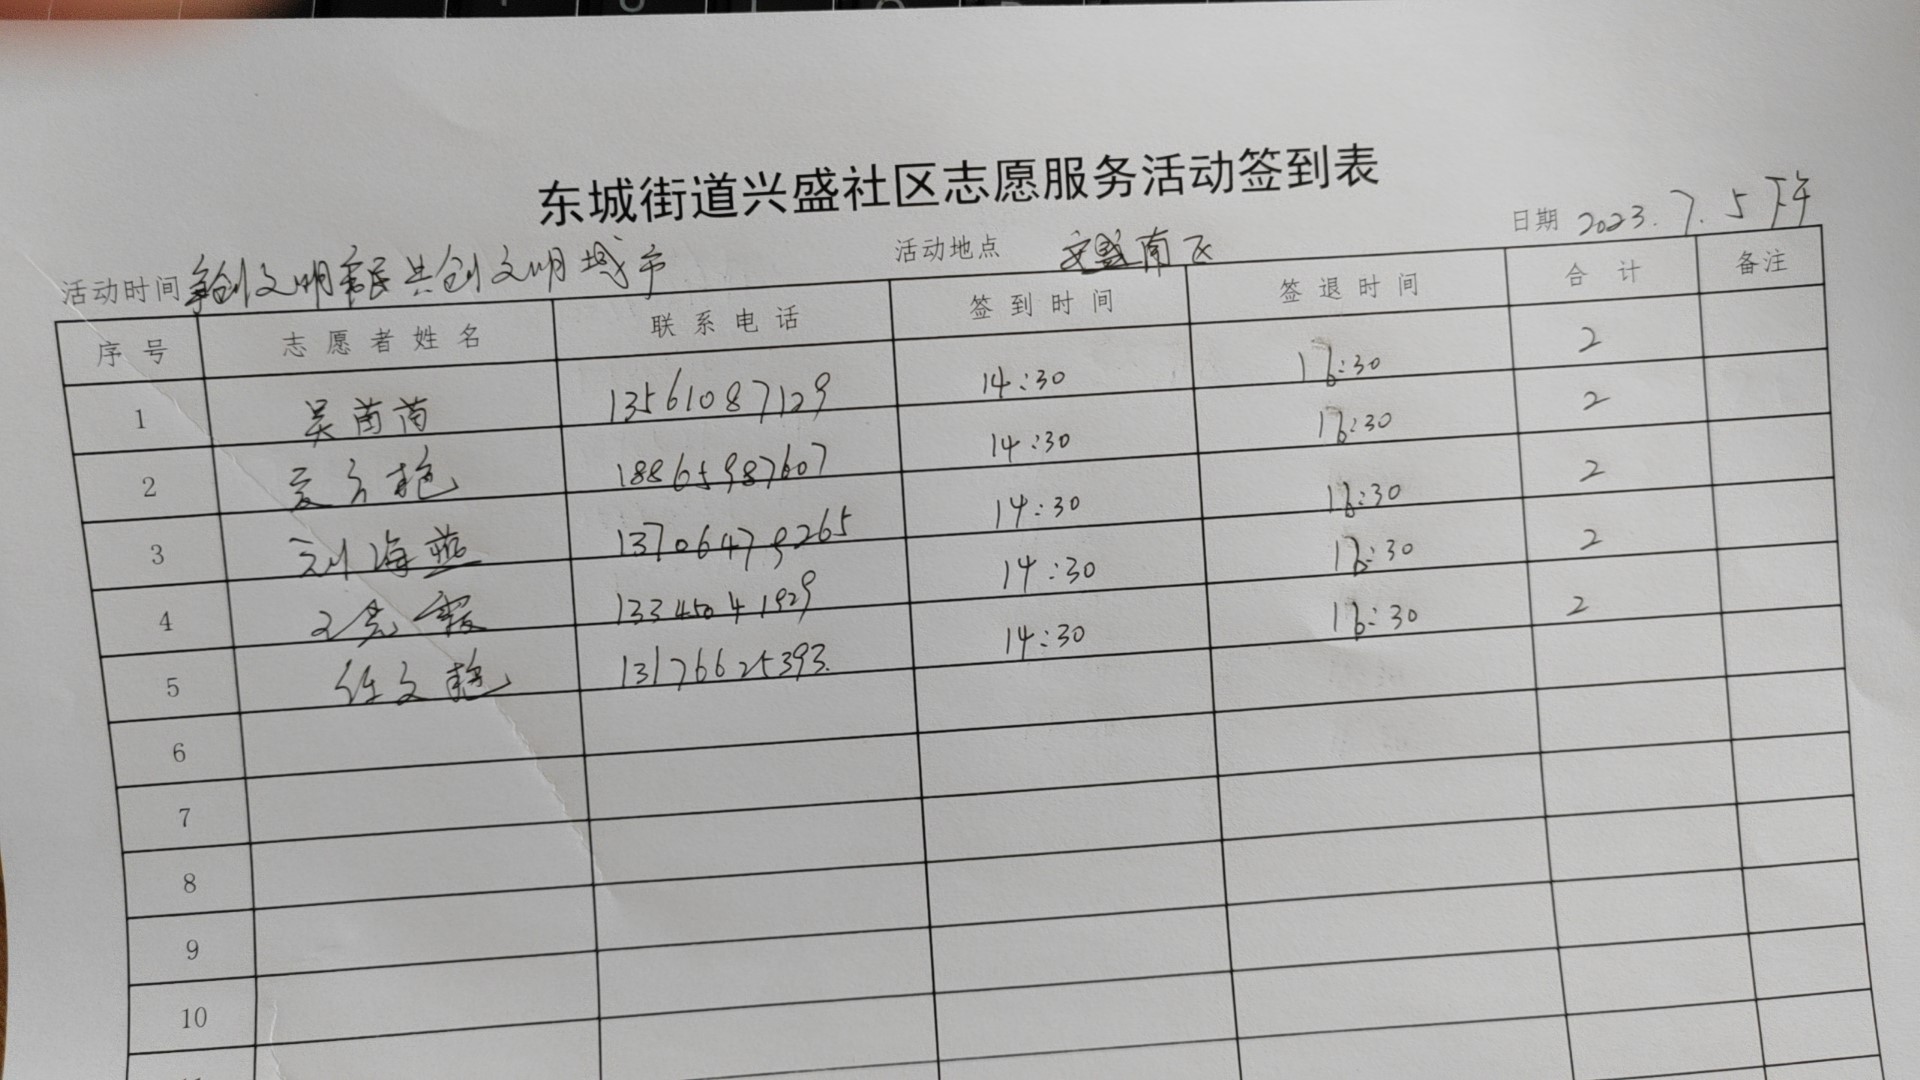 东城街道兴盛社区志愿服务活动签到表
活动时间 争创文明市民共创文明城市 活动地点 安盛南区 日期 2023.7.5下午
序号 志愿者姓名 联系电话 签到时间 签退时间 合计 备注
1 吴苗苗 13561087129 14:30 16:30 2
2 18865987607 14:30 16:30 2
3 刘海燕 13706479265 14:30 16:30 2
4 13345041929 14:30 16:30 2
5 任文艳 13176625393 14:30 16:30 2
6
7
8
9
10